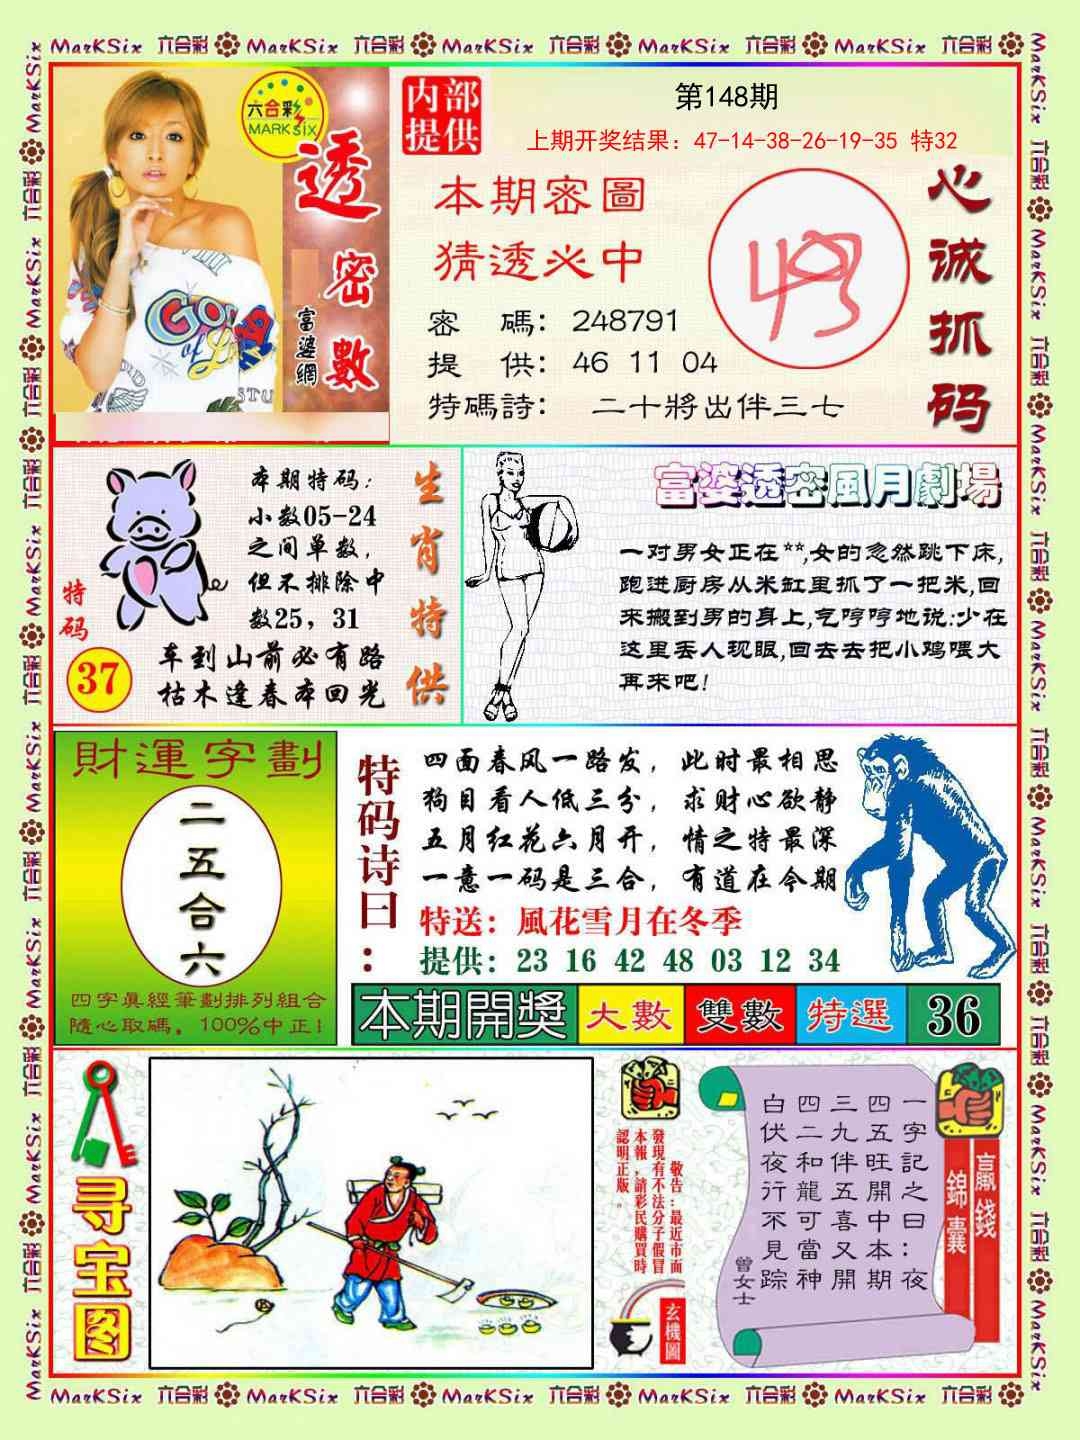 MarKSix 六合彩 MarKSix 六合彩 MarKSix 六合彩 MarKSix 六合彩 MarKSix 六合彩
六合彩
MARK SIX
透密數
富婆網
内部
提供
第148期
上期开奖结果：47-14-38-26-19-35 特32
本期密圖
猜透必中
密 碼：248791
提 供：46 11 04
特碼詩： 二十將出伴三七
心诚抓码
本期特码：
小数05-24
之间单数，
但不排除中
数25，31
特码
37
车到山前必有路
枯木逢春本回光
生肖特供
富婆透密風月劇場
一对男女正在**,女的忽然跳下床,
跑进厨房从米缸里抓了一把米,回
来搬到男的身上,气哼哼地说:少在
这里丢人现眼,回去去把小鸡喂大
再来吧!
財運字劃
二五合六
四字真經筆劃排列組合
隨心取碼。100%中正!
特码诗曰：
四面春风一路发，此时最相思
狗目看人低三分，求财心欲静
五月红花六月开，情之特最深
一意一码是三合，有道在今期
特送：風花雪月在冬季
提供：23 16 42 48 03 12 34
本期開獎 大數 雙數 特選 36
寻宝图
敬告：最近市面
發現有不法分子假冒
本報，請彩民購買時
認明正版。
玄機圖
一字記之曰：夜
四五旺開中本期
三九伴五喜又開
四二和龍可當神
白伏夜行不見踪
曾女士
贏錢
錦囊
MarKSix 六合彩 MarKSix 六合彩 MarKSix 六合彩 MarKSix 六合彩 MarKSix 六合彩